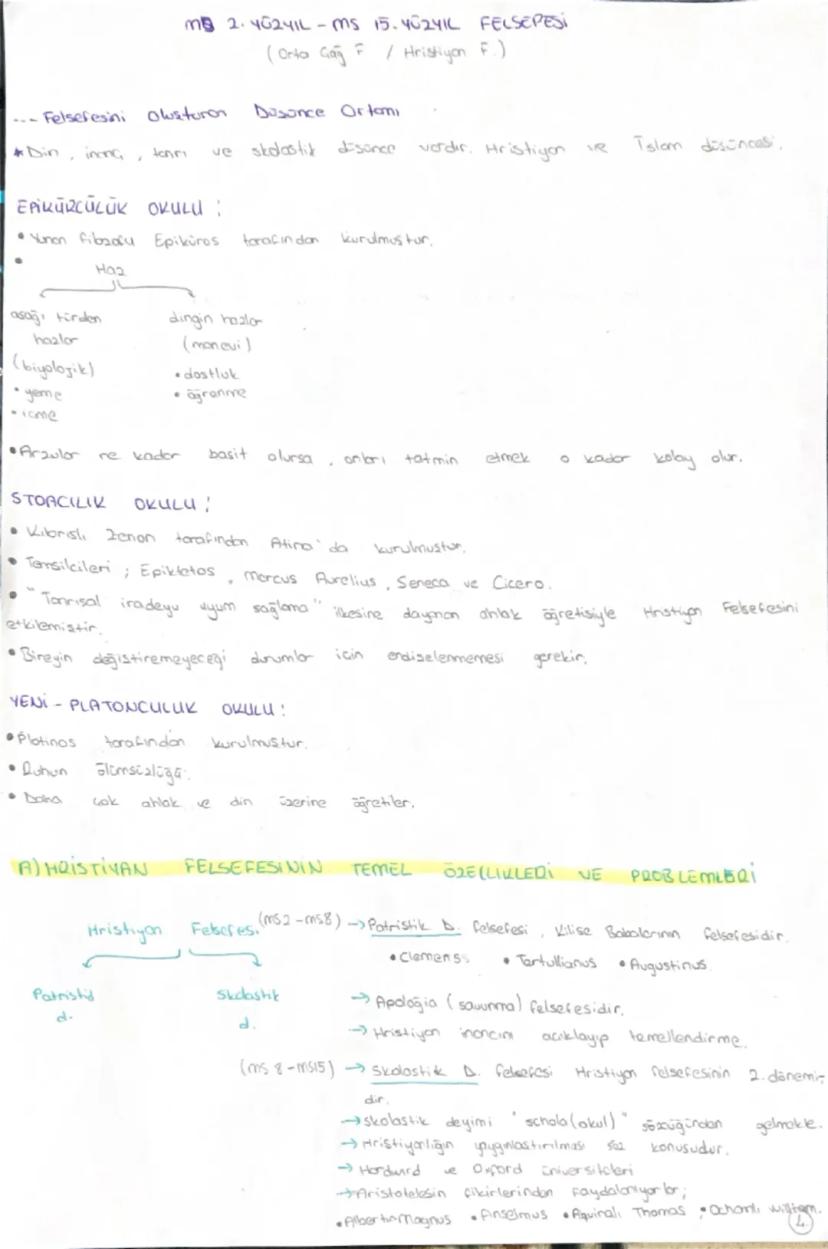 MS 2. YÜZYIL - MS 15. YÜZYIL FELSEFESİ
(Orta Çağ F / Hristiyan F.)
... Felsefesini Oluşturan Düşünce Ortamı
* Din, inanç, tanrı ve skolastik düşünce vardır. Hristiyan ve İslam düşüncesi.
EPİKÜRCÜLÜK OKULU :
• Yunan filozofu Epiküros tarafından kurulmuştur.
•
Haz
aşağı türden
hazlar
(biyolojik)
• yeme
• içme
dingin hazlar
(manevi)
• dostluk
• öğrenme
• Arzular ne kadar basit olursa, onları tatmin etmek o kadar kolay olur.
STOACILIK OKULU :
• Kıbrıslı Zenon tarafından Atina'da kurulmuştur.
• Temsilcileri ; Epiktetos, Marcus Aurelius, Seneca ve Cicero.
• "Tanrısal iradeye uyum sağlama" ilkesine dayanan ahlak öğretisiyle Hristiyan Felsefesini
etkilemiştir.
• Bireyin değiştiremeyeceği durumlar için endişelenmemesi gerekir.
YENİ - PLATONCULUK OKULU :
• Plotinos tarafından kurulmuştur.
• Ruhun ölümsüzlüğü.
• Daha çok ahlak ve din üzerine öğretiler.
A) HRİSTİYAN FELSEFESİNİN TEMEL ÖZELLİKLERİ VE PROBLEMLERİ
Hristiyan Felsefesi
Patristik
d.
Skolastik
d.
(ms2 - ms8) → Patristik D. felsefesi, Kilise Babalarının felsefesidir.
• Clemens • Tartullianus • Augustinus
→ Apologia (savunma) felsefesidir.
→ Hristiyan inancını açıklayıp temellendirme.
(ms 8 - ms15) → Skolastik D. felsefesi Hristiyan felsefesinin 2. dönemi-
dir.
→ skolastik deyimi "schola(okul)" sözcüğünden gelmekte.
→ Hristiyanlığın yaygınlaştırılması söz konusudur.
→ Hardward ve Oxford üniversiteleri
→ Aristotelesin fikirlerinden faydalanıyorlar;
• Albertus Magnus • Anselmus • Aquinalı Thomas • Ockhamlı William.
4